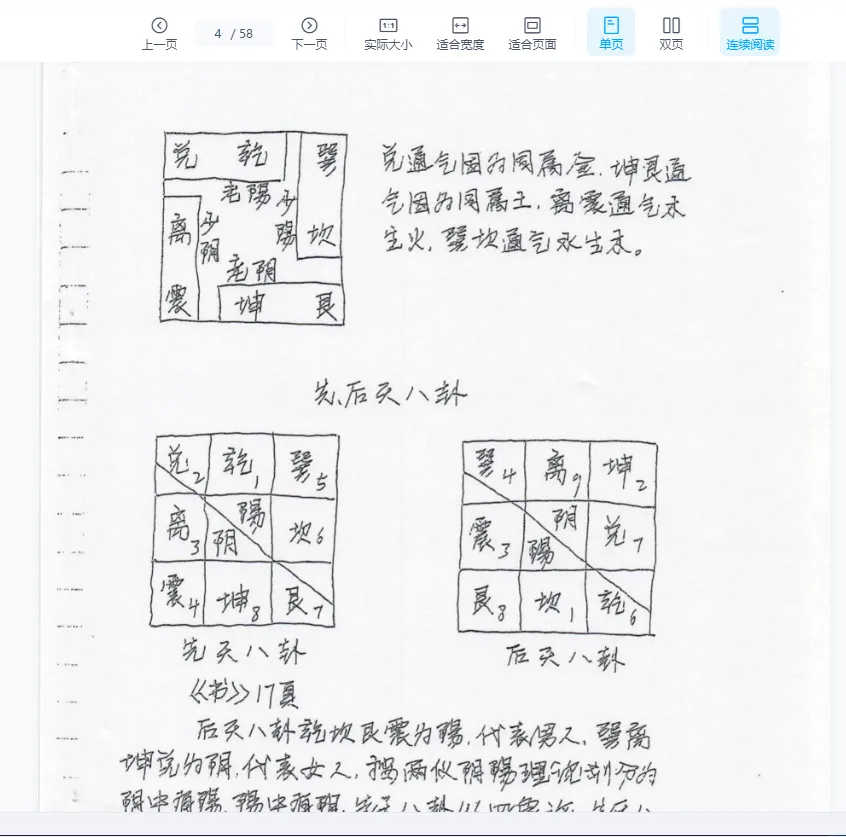 上一页 4 / 58 下一页 实际大小 适合宽度 适合页面 单页 双页 连续阅读
兑 乾 巽
老陽 少陽
离 少阴 坎
老阴
震 坤 艮
兑通气因为同属金，坤艮通
气因为同属土，离震通气木
生火，巽坎通气水生木。
先、后天八卦
兑2 乾1 巽5
离3 阴 陽 坎6
震4 坤8 艮7
先天八卦
巽4 离9 坤2
震3 陽 阴 兑7
艮8 坎1 乾6
后天八卦
《书》17頁
后天八卦乾坎艮震为陽，代表男人，巽离
坤兑为阴，代表女人，按两仪阴陽理论划分的
阴中有陽，陽中有阴，先天八卦以四象论